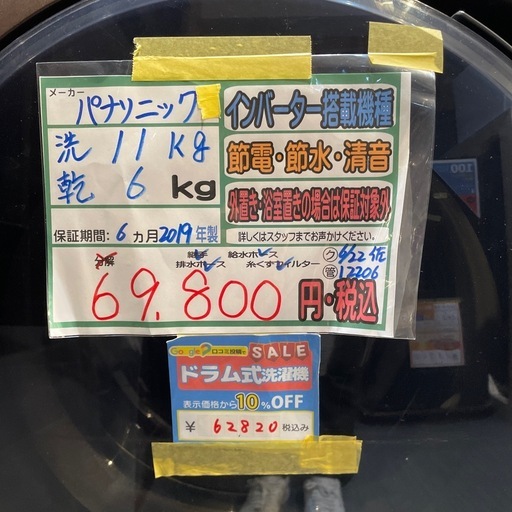 メーカー
パナソニック
洗 11 kg
乾 6 kg
インバーター搭載機種
節電・節水・清音
外置き・浴室置きの場合は保証対象外
保証期間: 6 カ月 2019 年製
詳しくはスタッフまでお声かけください。
分解 継手 給水ホース
排水ホース 糸くずフィルター
ク 6/22
管 12206
69.800 円・税込
Google 口コミ投稿で SALE
ドラム式洗濯機
表示価格から10%OFF
¥ 62820 税込み
100